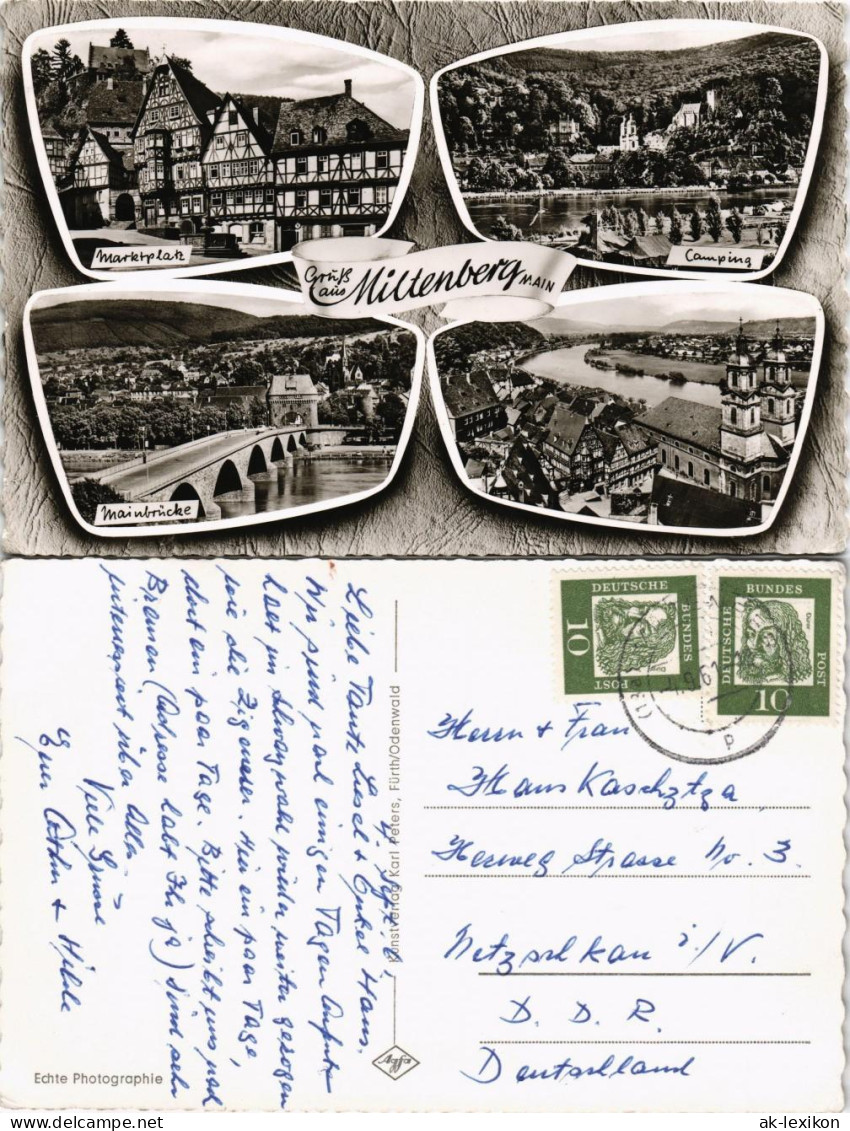 Marktplatz
Camping
Gruß
aus Miltenberg MAIN
Mainbrücke
DEUTSCHE
BUNDES
POST
10
Dürer
DEUTSCHE
BUNDES
POST
10
Dürer
P
Liebe Tante Liesel + Onkel Hans.
Wir sind nach einigen Tagen Aufent-
halt im Schwarzwald wieder weiter gezogen
wie die Zigeuner. Hier ein paar Tage,
dort ein paar Tage. Bitte schreibt uns nach
Bremen (Adresse habt Ihr ja) sind sehr
interessiert über Alles
Viele Grüsse
Eure + Hilde
Kunstverlag Karl Peters, Fürth/Odenwald
Herrn + Frau
Hans Kaschztza
Herweg Strasse No. 3.
Netzschkau i/V.
D. D. R.
Deutschland
Echte Photographie
Agfa
ak-lexikon.com